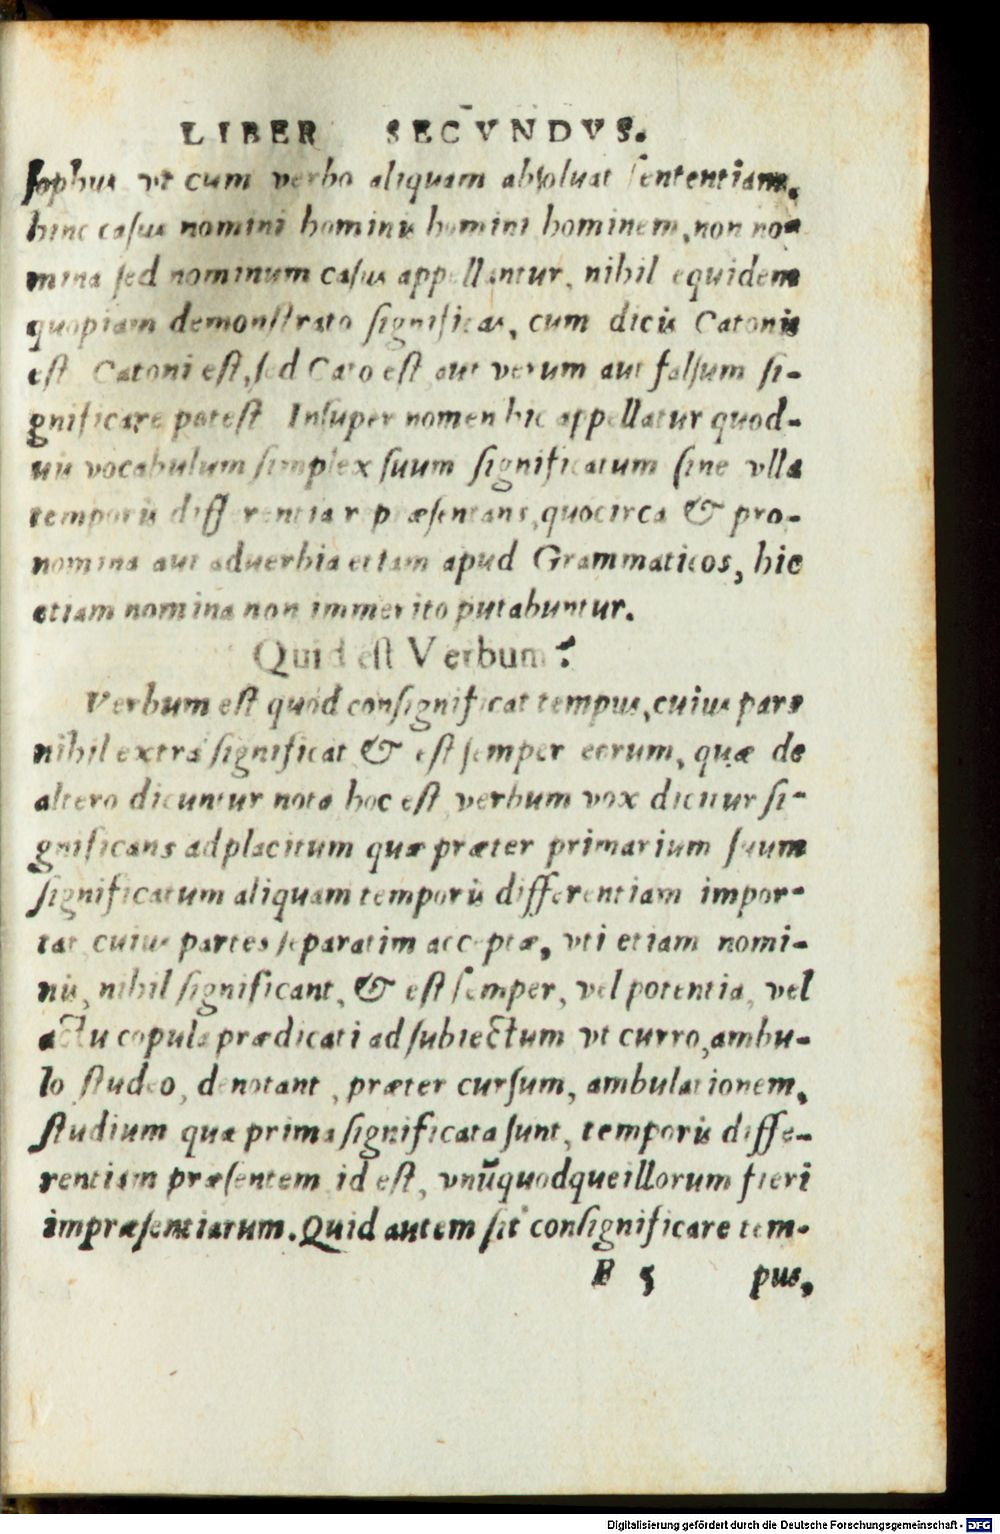 LIBER SECVNDVS.
ſophus vt cum verbo aliquam abſoluat ſententiam,
hinc caſus nomini hominis homini hominem, non no-
mina ſed nominum caſus appellantur, nihil equidem
quopiam demonſtrato ſignificas, cum dicis Catonis
eſt Catoni eſt, ſed Cato eſt aut verum aut falſum ſi-
gnificare poteſt Inſuper nomen hic appellatur quod-
uis vocabulum ſimplex ſuum ſignificatum ſine vlla
temporis differentia repræſentans, quocirca & pro-
nomina aut aduerbia etiam apud Grammaticos, hic
etiam nomina non immerito putabuntur.
Quid eſt Verbum?
Verbum eſt quod conſignificat tempus, cuius pars
nihil extra ſignificat & eſt ſemper eorum, quæ de
altero dicuntur nota hoc eſt verbum vox dicitur ſi-
gnificans ad placitum quæ præter primarium ſuum
ſignificatum aliquam temporis differentiam impor-
tat cuius partes ſeparatim acceptæ, vti etiam nomi-
nis, nihil ſignificant, & eſt ſemper, vel potentia, vel
actu copula prædicati ad ſubiectum vt curro, ambu-
lo ſtudeo, denotant, præter curſum, ambulationem,
ſtudium quæ prima ſignificata ſunt, temporis diffe-
rentiam præſentem id eſt, vnūquodque illorum fieri
impræſentiarum. Quid autem ſit conſignificare tem-
F 5 pus,
Digitalisierung gefördert durch die Deutsche Forschungsgemeinschaft - DFG